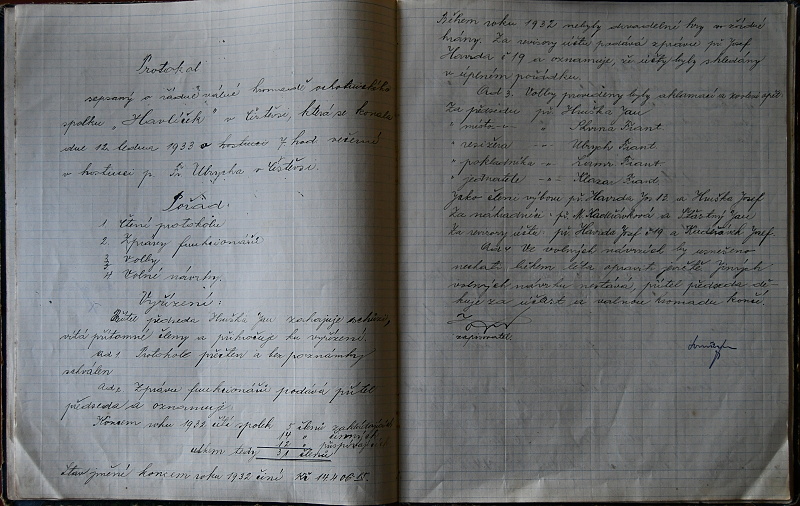 Protokol
sepsaný o řádné valné hromadě ochotnického
spolku „Havlíček" v Čistěvsi, která se konala
dne 12. ledna 1933 o hostinci 7 hod večerní
v hostinci p. Fr. Ulrycha v Čistěvsi.
Pořad:
1 Čtení protokolu
2. Zprávy funkcionářů
3 Volby
4 Volné návrhy.
Vyřízení:
Přítel předseda Hruška Jan zahajuje schůzi,
vítá přítomné členy a přikročuje ku vyřízení.
ad 1 Protokol přečten a bez poznámky
schválen
Ad 2. Zprávu funkcionářů podává přítel
předseda a oznamuje
Koncem roku 1932 čítá spolek 5 členů zakládajících
14 " činných
12 " přispívajících
celkem tedy 31 členů
Stav jmění koncem roku 1932 činí Kč 14.406
Během roku 1932 nebyly divadelné hry v žádné
hrány. Za revisory účtů podává zprávu př. Josef
Havrda č 19 a oznamuje, že účty byly shledány
v úplném pořádku.
Ad 3. Volby provedeny byly aklamací a zvoleni opět
Za předsedu př. Hruška Jan
" místo-"- " Skviná Frant.
" resiséra -"- Ulrych Frant
" pokladníka -"- Frant.
" jednatele -"- Frant
jako členi výboru př. Havrda Jos 12. a Hruška Josef
Za náhradníce: př. M. a Šťastný Jan
Za revisory účtů: př. Havrda Josef č 19 a Josef
Ad 4 Ve volných návrzích by usneseno
nechat během léta opravit Jiných
volných návrhů nestává, přítel předseda dě-
kuje za účast a valnou hromadu končí.
zapisovatel.